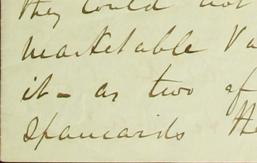 they could not
marketable Va
it - as two of
Spaniards the